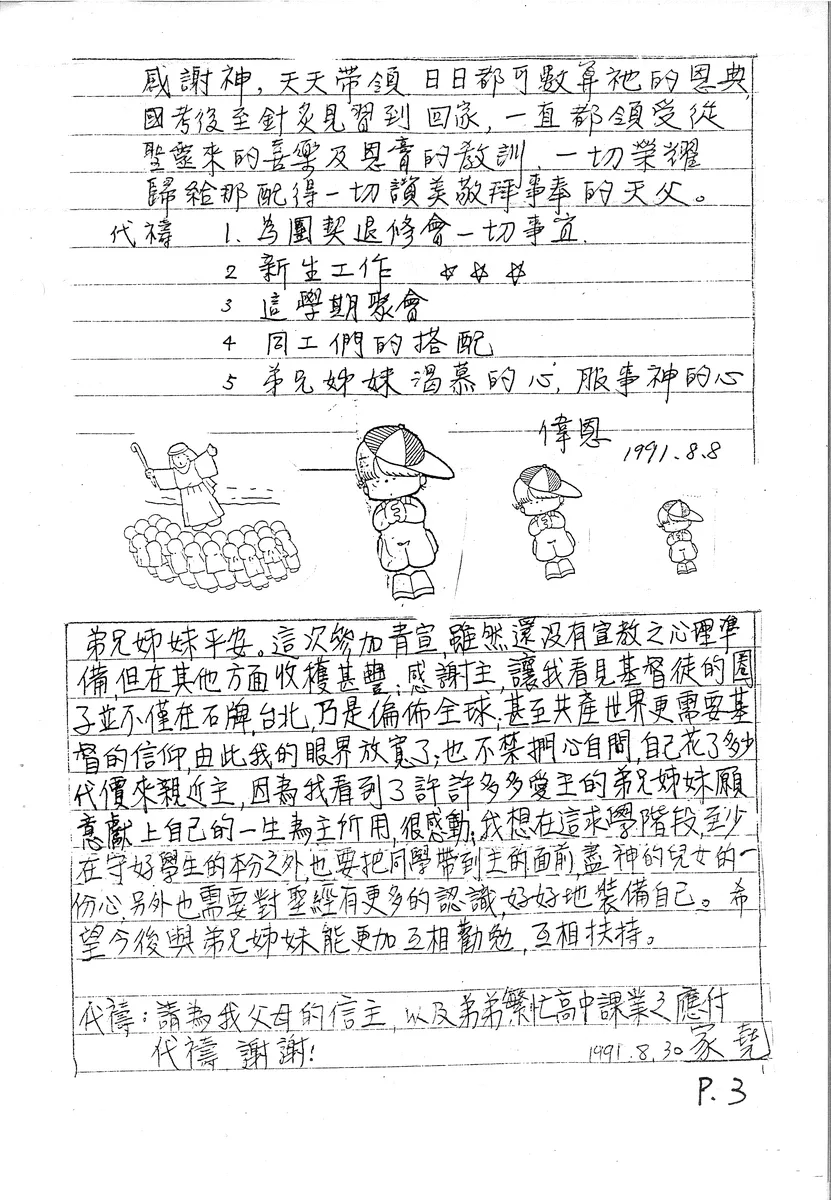 感謝神，天天帶領 日日都可數算祂的恩典，
國考後至針灸見習到回家，一直都領受從
聖靈來的喜樂及恩膏的教訓，一切榮耀
歸給那配得一切讚美敬拜事奉的天父。
代禱 1. 為團契退修會一切事宜.
2 新生工作 ☆ ☆ ☆
3 這學期聚會
4 同工們的搭配
5 弟兄姊妹渴慕的心，服事神的心
偉恩 1991.8.8
弟兄姊妹平安。這次參加青宣，雖然還沒有宣教之心理準
備，但在其他方面收穫甚豐；感謝主，讓我看見基督徒的圈
子並不僅在石牌，台北，乃是偏佈全球；甚至共產世界更需要基
督的信仰，由此我的眼界放寬了；也不禁捫心自問，自己花了多少
代價來親近主，因為我看到了許許多多愛主的弟兄姊妹願
意獻上自己的一生為主所用，很感動；我想在這求學階段，至少
在守好學生的本分之外，也要把同學帶到主的面前，盡神的兒女的一
份心，另外也需要對聖經有更多的認識，好好地裝備自己。希
望今後與弟兄姊妹能更加互相勸勉，互相扶持。
代禱：請為我父母的信主，以及弟弟繁忙高中課業之應付
代禱，謝謝！ 1991.8.30 家堯
P.3